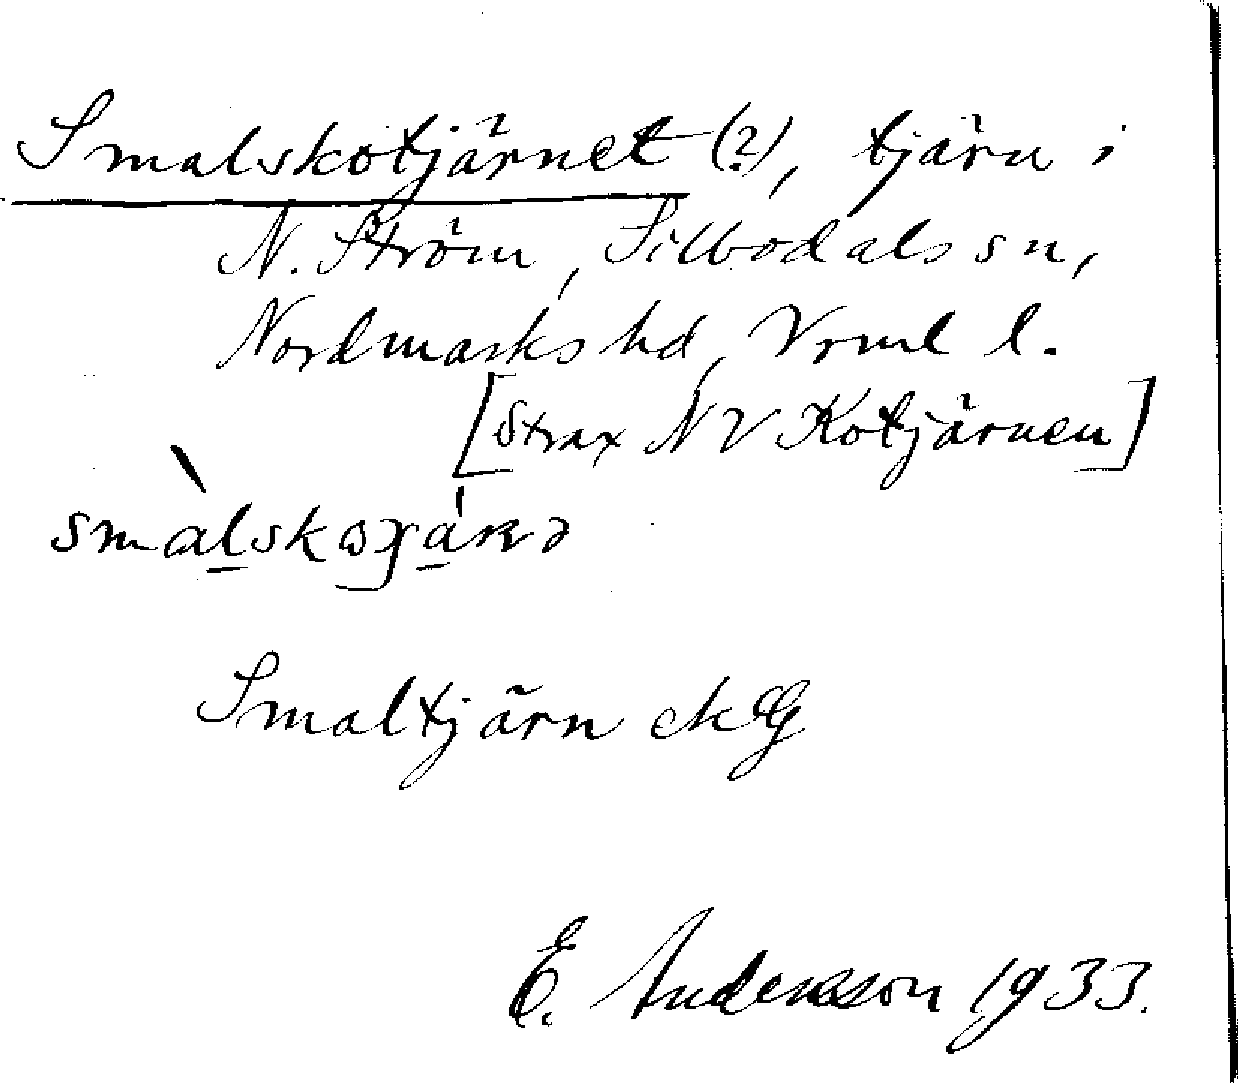 Smalskotjärnet (?), tjärn i
N. Ström, Silbodals sn,
Nordmarks hd, Vrml l.
[Strax NV Kotjärnen]
Smaltjärn ekG
E. Andersson 1933.